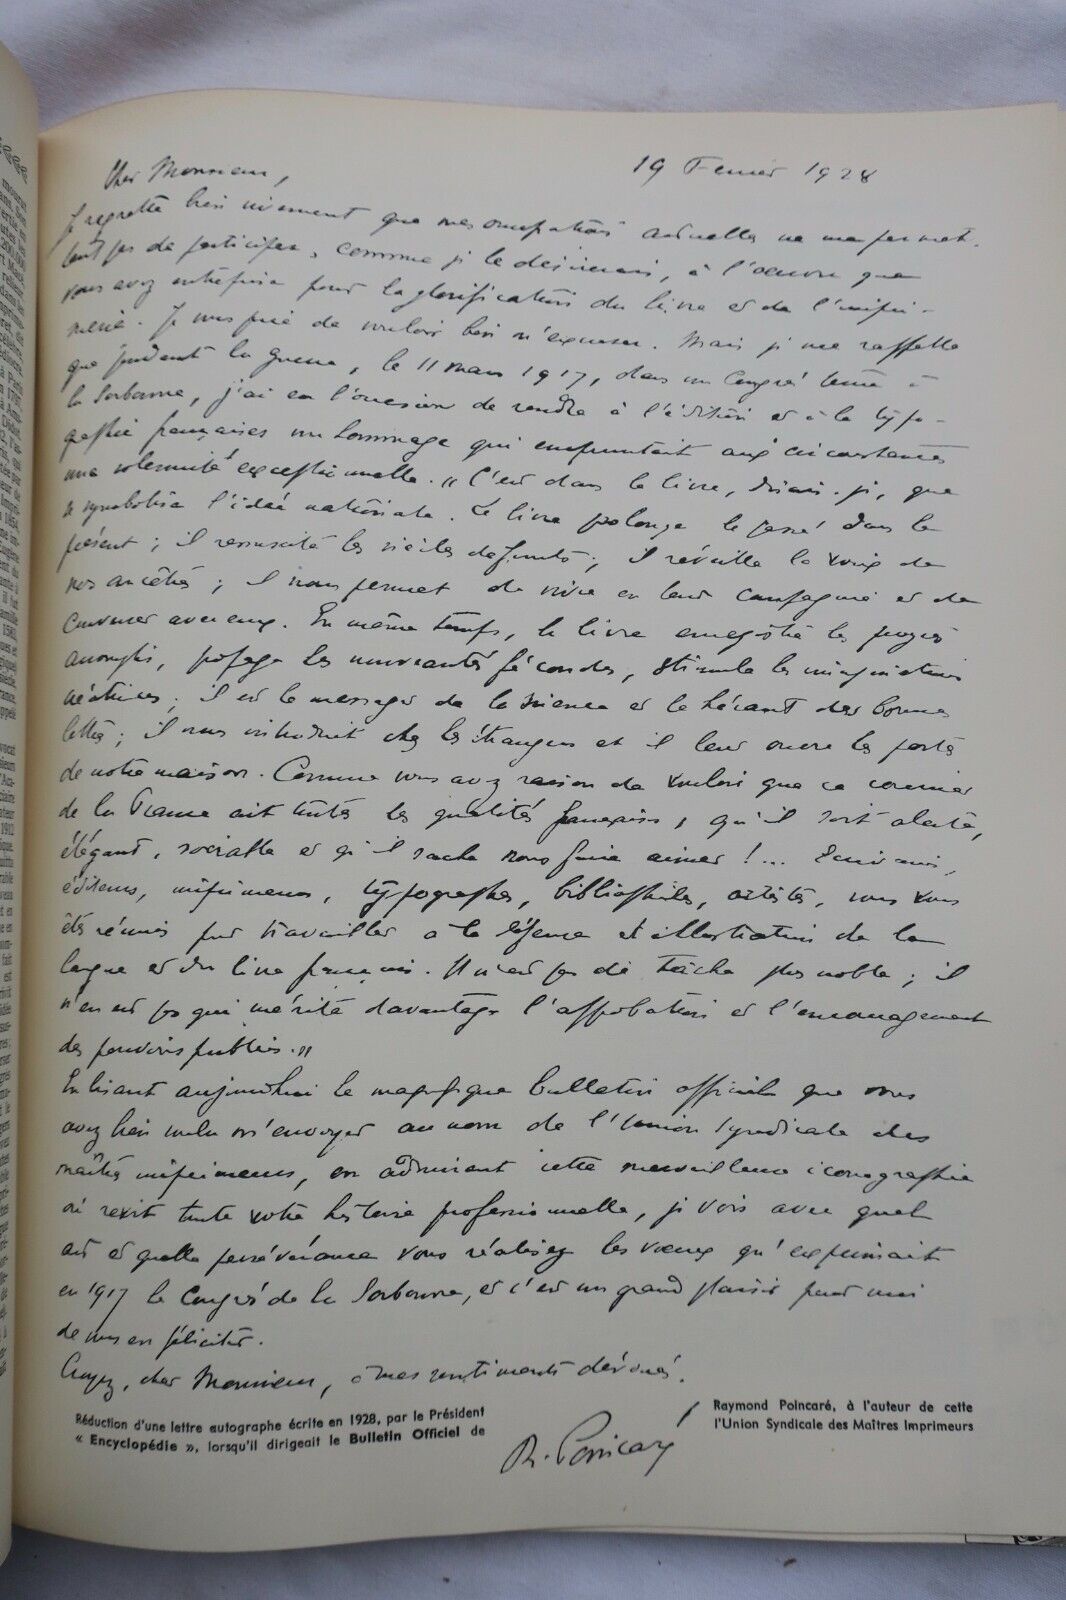 19 Février 1928
Cher Monsieur,
Je regrette bien vivement que mes occupations actuelles ne me permet-
tent pas de participer, comme je le désirerais, à l'oeuvre que
vous avez entreprise pour la glorification du livre et de l'impri-
merie. Je vous prie de vouloir bien m'excuser. Mais je me rappelle
que pendant la guerre, le 11 mars 1917, dans un Congrès tenu à
la Sorbonne, j'ai eu l'occasion de rendre à l'édition et à la typo-
graphie françaises un hommage qui empruntait aux circonstances
une solennité exceptionnelle. "C'est dans le livre, disais-je, que
se symbolise l'idée nationale. Le livre prolonge le passé dans le
présent ; il ressuscite les siècles défunts ; il réveille la voix de
nos ancêtres ; il nous permet de vivre en leur compagnie et de
converser avec eux. En même temps, le livre enregistre les progrès
accomplis, propage les nouveautés fécondes, stimule les imaginations
créatrices ; il est le messager de la science et le héraut des bonnes
lettres ; il nous introduit chez les étrangers et il leur ouvre les portes
de notre maison. Comme vous avez raison de vouloir que ce courrier
de la France ait toutes les qualités françaises, qu'il soit alerte,
élégant, sociable et qu'il sache nous faire aimer !... Ecrivains,
éditeurs, imprimeurs, typographes, bibliophiles, artistes, vous vous
êtes réunis pour travailler à la défense et illustration de la
langue et du livre français. Il n'est pas de tâche plus noble ; il
n'en est pas qui mérite davantage l'approbation et l'encouragement
des pouvoirs publics."
En lisant aujourd'hui le magnifique bulletin officiel que vous
avez bien voulu m'envoyer au nom de l'Union Syndicale des
maîtres imprimeurs, en admirant cette merveilleuse iconographie
où revit toute votre histoire professionnelle, je vois avec quel
art et quelle persévérance vous réalisez les voeux qu'exprimait
en 1917 le Congrès de la Sorbonne, et c'est un grand plaisir pour moi
de vous en féliciter.
Croyez, cher Monsieur, à mes sentiments dévoués.
R. Poincaré
Réduction d'une lettre autographe écrite en 1928, par le Président Raymond Poincaré, à l'auteur de cette
« Encyclopédie », lorsqu'il dirigeait le Bulletin Officiel de l'Union Syndicale des Maîtres Imprimeurs